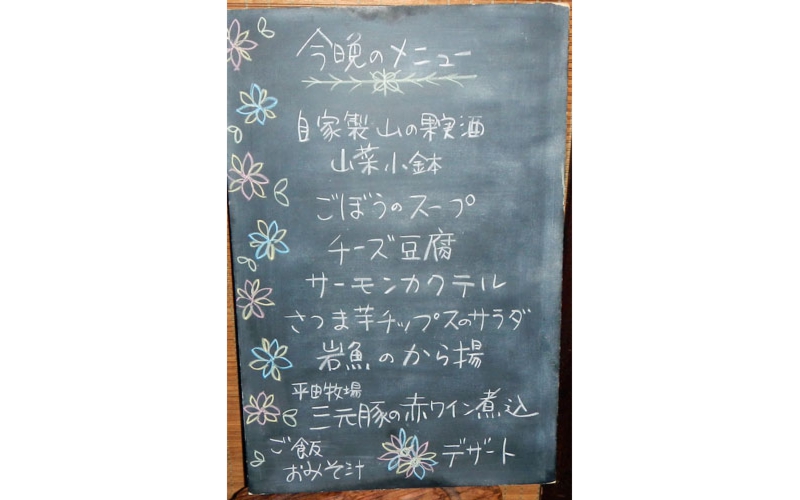 今晩のメニュー
自家製山の果実酒
山菜小鉢
ごぼうのスープ
チーズ豆腐
サーモンカクテル
さつま芋チップスのサラダ
岩魚のから揚
平田牧場
三元豚の赤ワイン煮込
ご飯
おみそ汁
デザート